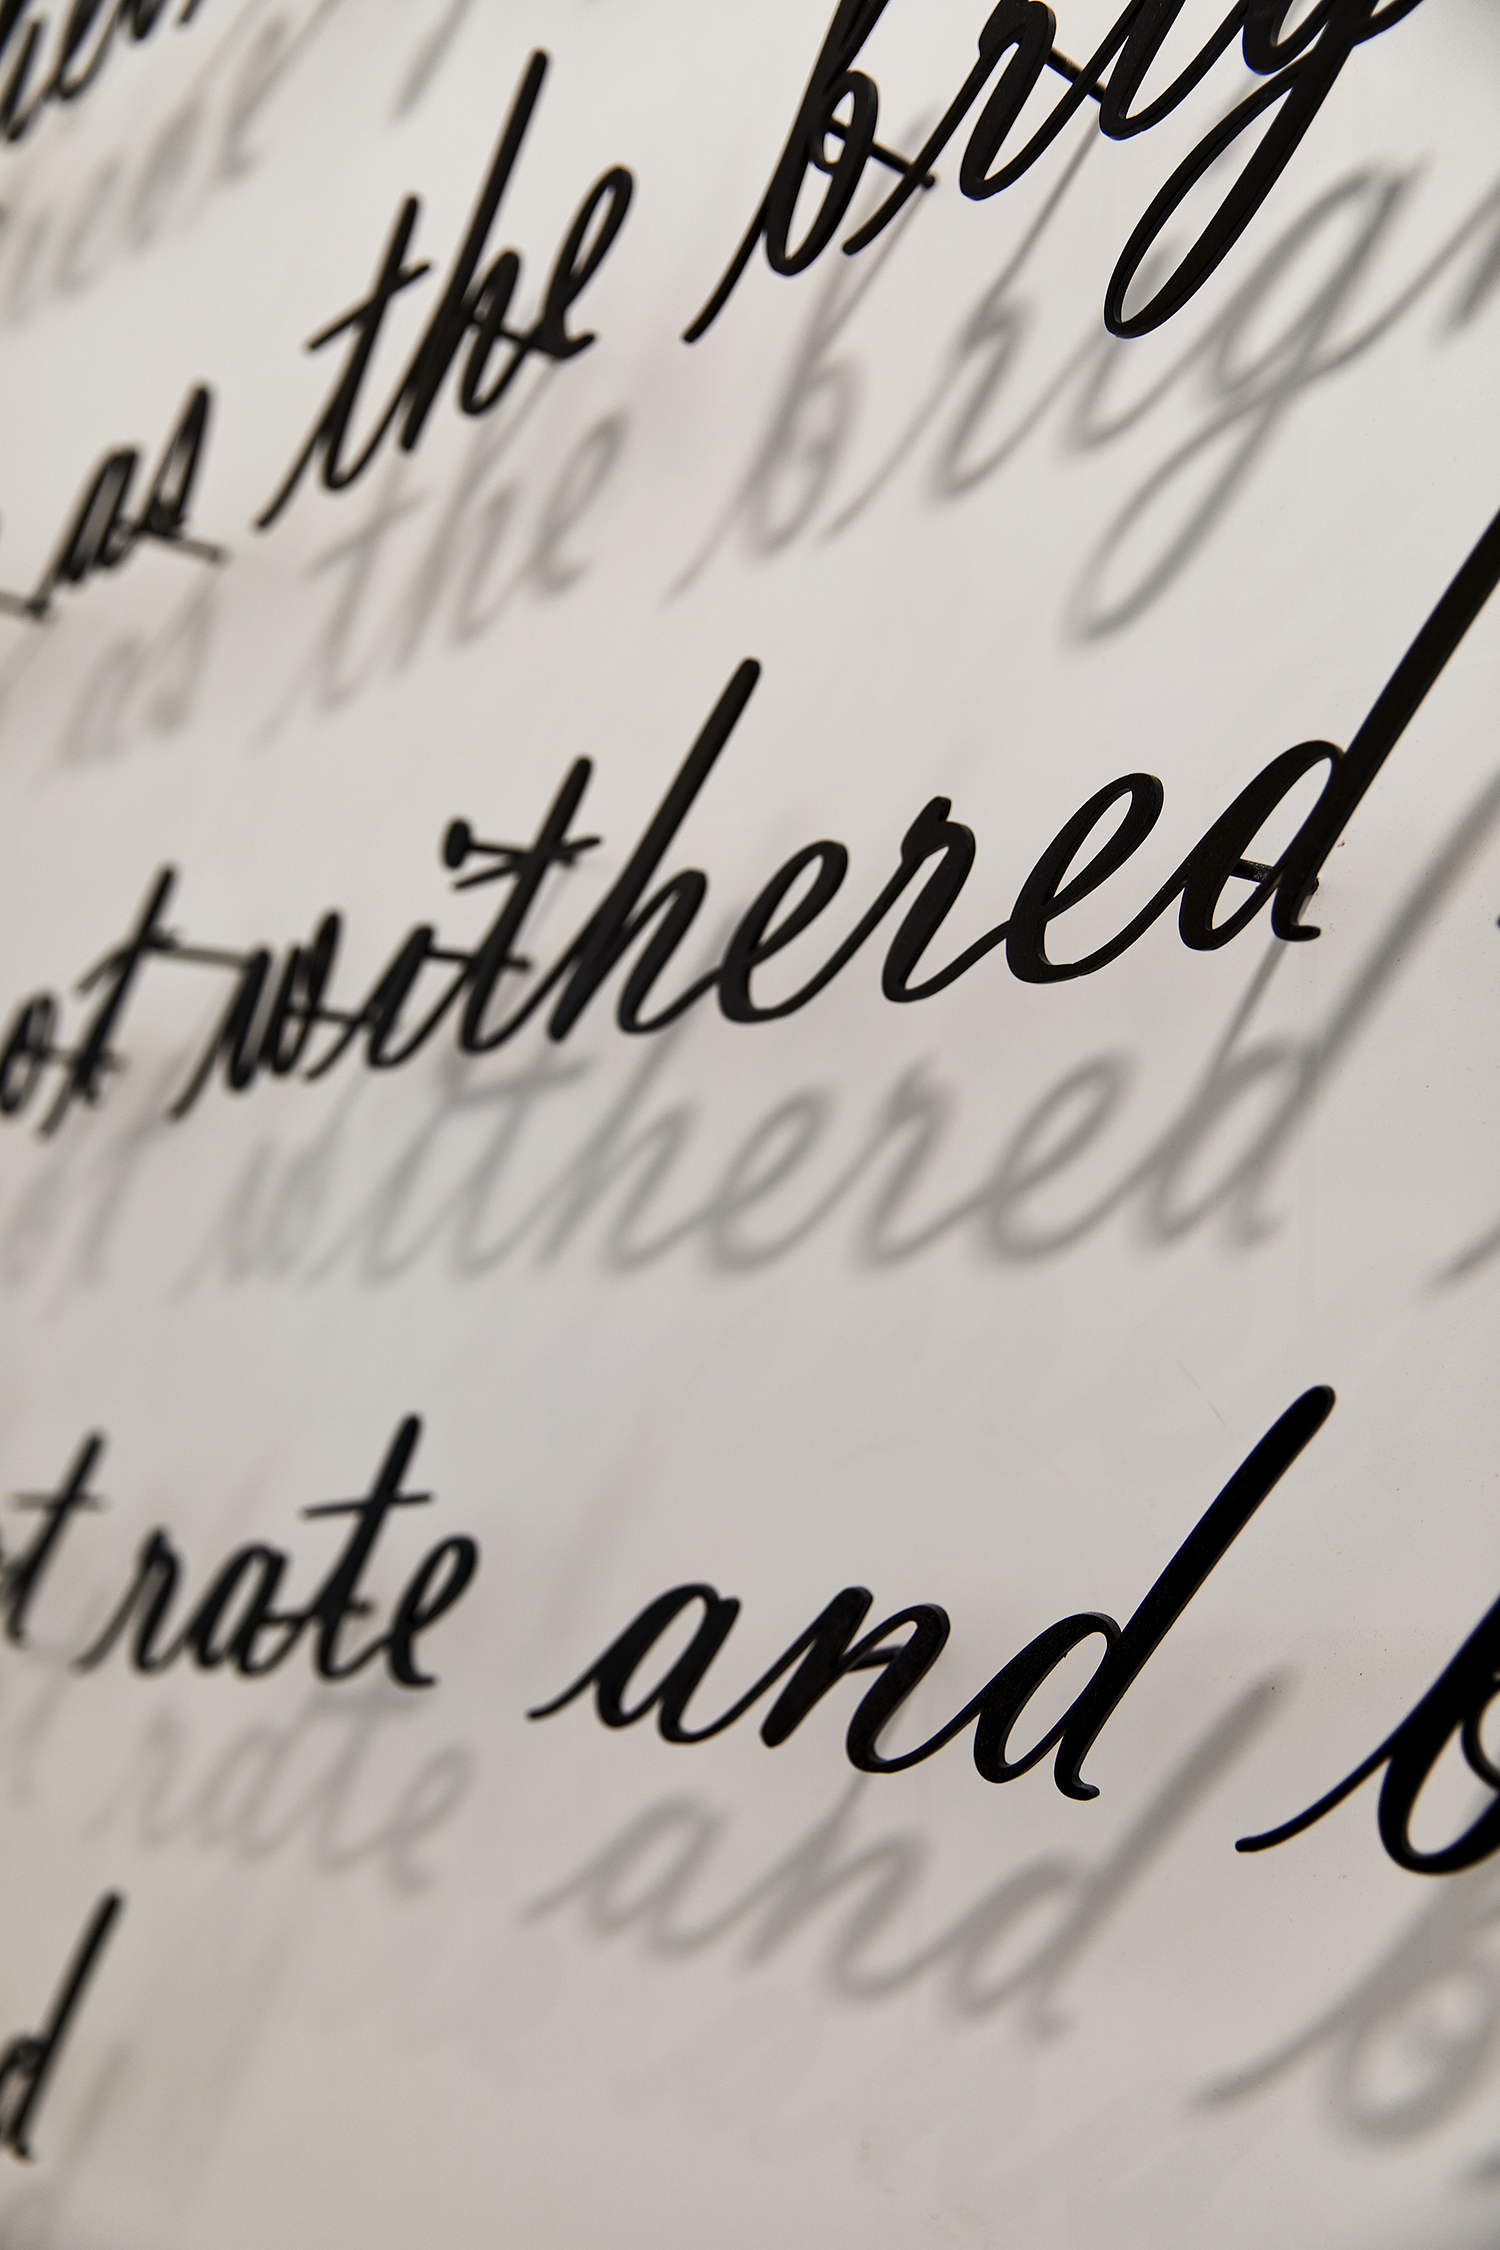 as the brig
ot withered
t rate and b
d